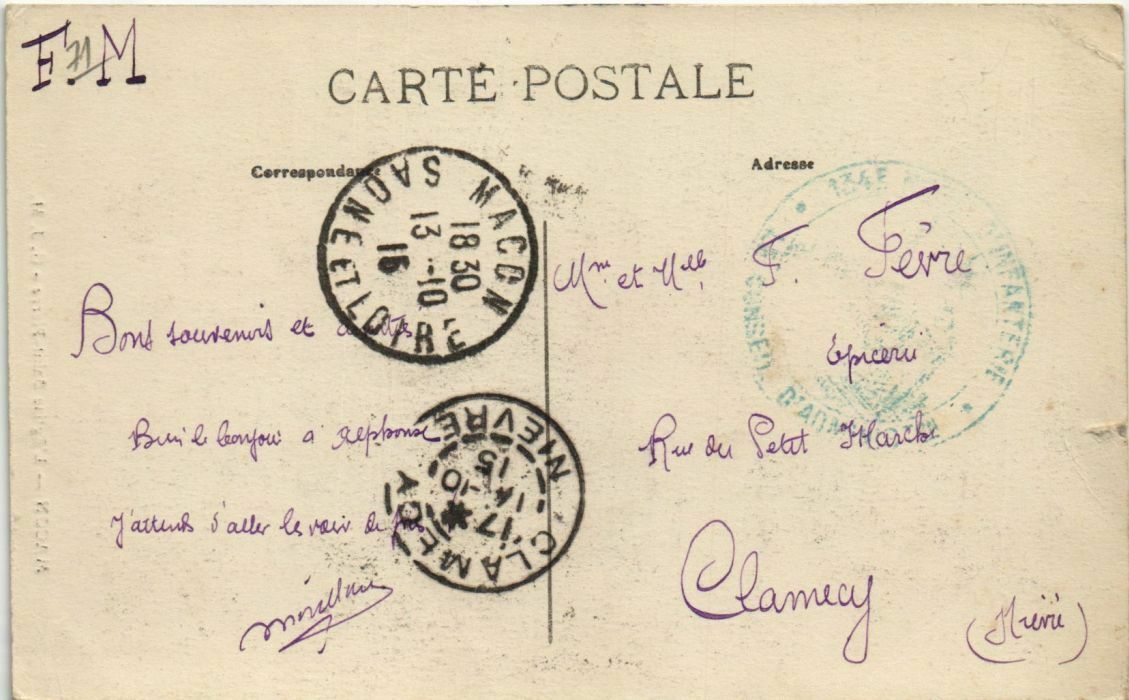 F.M
71
CARTE POSTALE
Correspondance
Adresse
MACON
18 30
13 -10
15
SAONE ET LOIRE
134E D'INFANTERIE
CONSEIL D'ADMINISTRATION
Mme et Melle F. Fèvre
Epicerie
Rue du Petit Marché
Clamecy
(Nièvre)
Bons souvenirs et
Bien le bonjour a Alphonse
J'attends d'aller le voir de
CLAMECY
17 *
14 -10
15
NIEVRE